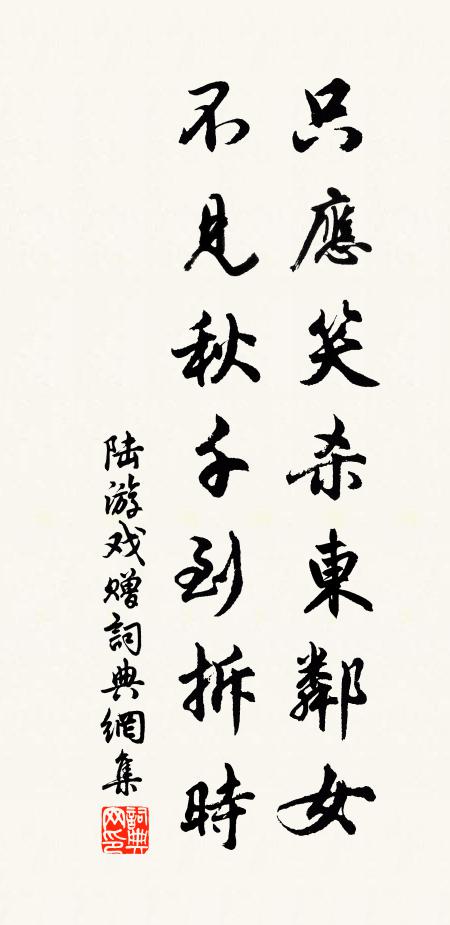 只應笑杀東鄰女
不見秋千到拆時
陆游戏赠詞典網集
詞典网印